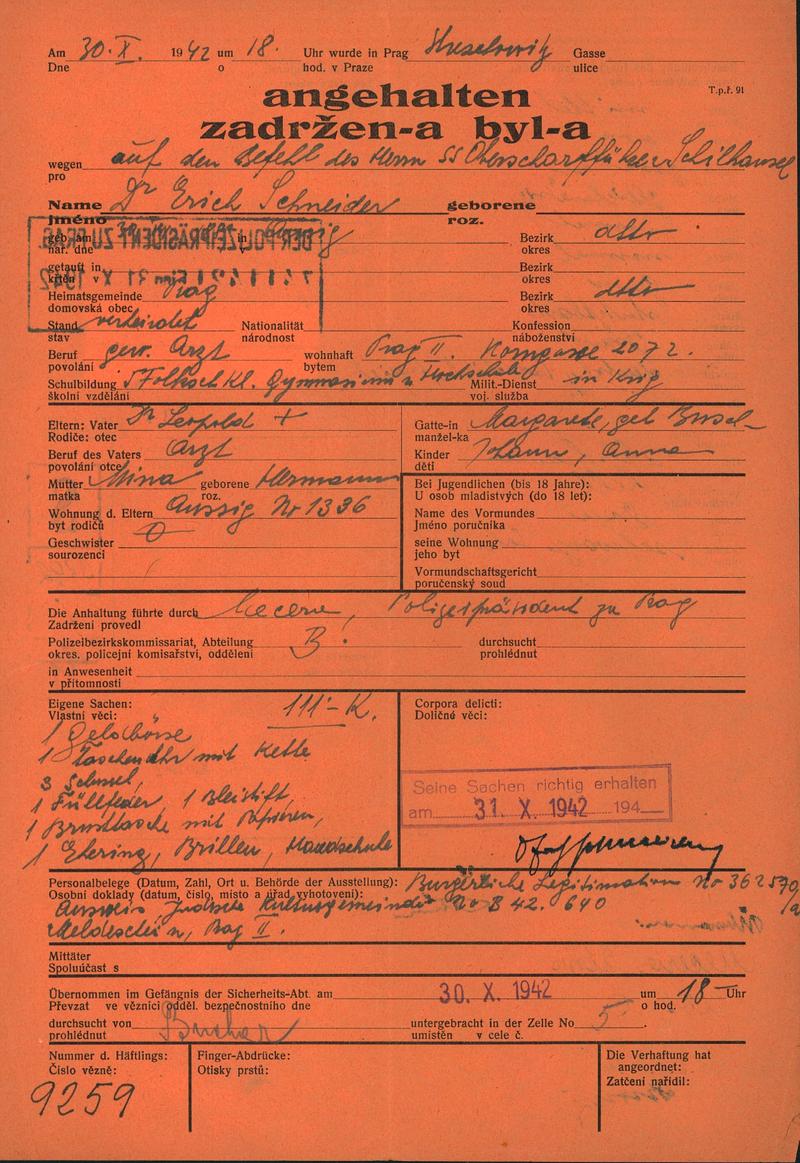 Am 30. X. 1942 um 18. Uhr wurde in Prag Gasse
Dne o hod. v Praze ulice
T.p.ř. 91
angehalten
zadržen-a byl-a
wegen auf den Befehl des Herrn SS Oberscharfführer
pro
Name Dr Erich Schneider geborene
Jméno roz.
geb. am in Bezirk dtto
nar. dne v okres
getauft in Bezirk
křtěn v okres
Heimatsgemeinde Prag Bezirk dtto
domovská obec okres
Stand verheiratet Nationalität Konfession
stav národnost náboženství
Beruf gew. Arzt wohnhaft Prag II. 2072.
povolání bytem
Schulbildung 5 Kl. Gymnasium u Hochschule Milit.-Dienst in Krieg
školní vzdělání voj. služba
Eltern: Vater Dr Leopold +
Rodiče: otec
Beruf des Vaters Arzt
povolání otce
Mutter Mina geborene Hermann
matka roz.
Wohnung d. Eltern Aussig No 1336
byt rodičů
Geschwister 0
sourozenci
Gatte-in Margarete, geb
manžel-ka
Kinder Johann, Anna
děti
Bei Jugendlichen (bis 18 Jahre):
U osob mladistvých (do 18 let):
Name des Vormundes
Jméno poručníka
seine Wohnung
jeho byt
Vormundschaftsgericht
poručenský soud
Die Anhaltung führte durch Polizeipräsident zu Prag
Zadržení provedl
Polizeibezirkskommissariat, Abteilung B. durchsucht
okres. policejní komisařství, oddělení prohlédnut
in Anwesenheit
v přítomnosti
Eigene Sachen: 111'- K.
Vlastní věci:
1 Geldbörse
1 Taschenuhr mit Kette
3 Schlüssel,
1 Füllfeder, 1 Bleistift,
1 Brusttasche mit Papieren,
1 Ehering, Brillen, Handschuhe
Corpora delicti:
Doličné věci:
Seine Sachen richtig erhalten
am 31. X. 1942 194
Personalbelege (Datum, Zahl, Ort u. Behörde der Ausstellung): Bürgerliche Legitimation No 362570/a
Osobní doklady (datum, číslo, místo a úřad vyhotovení):
Ausweis Jüdische Kultusgemeinde No B 42. 640
Meldeschein, Prag II.
Mittäter
Spoluúčast s
Übernommen im Gefängnis der Sicherheits-Abt. am 30. X. 1942 um 18 Uhr
Převzat ve věznici odděl. bezpečnostního dne o hod.
durchsucht von untergebracht in der Zelle No 5.
prohlédnut umístěn v cele č.
Nummer d. Häftlings:
Číslo vězně:
9259
Finger-Abdrücke:
Otisky prstů:
Die Verhaftung hat
angeordnet:
Zatčení nařídil: